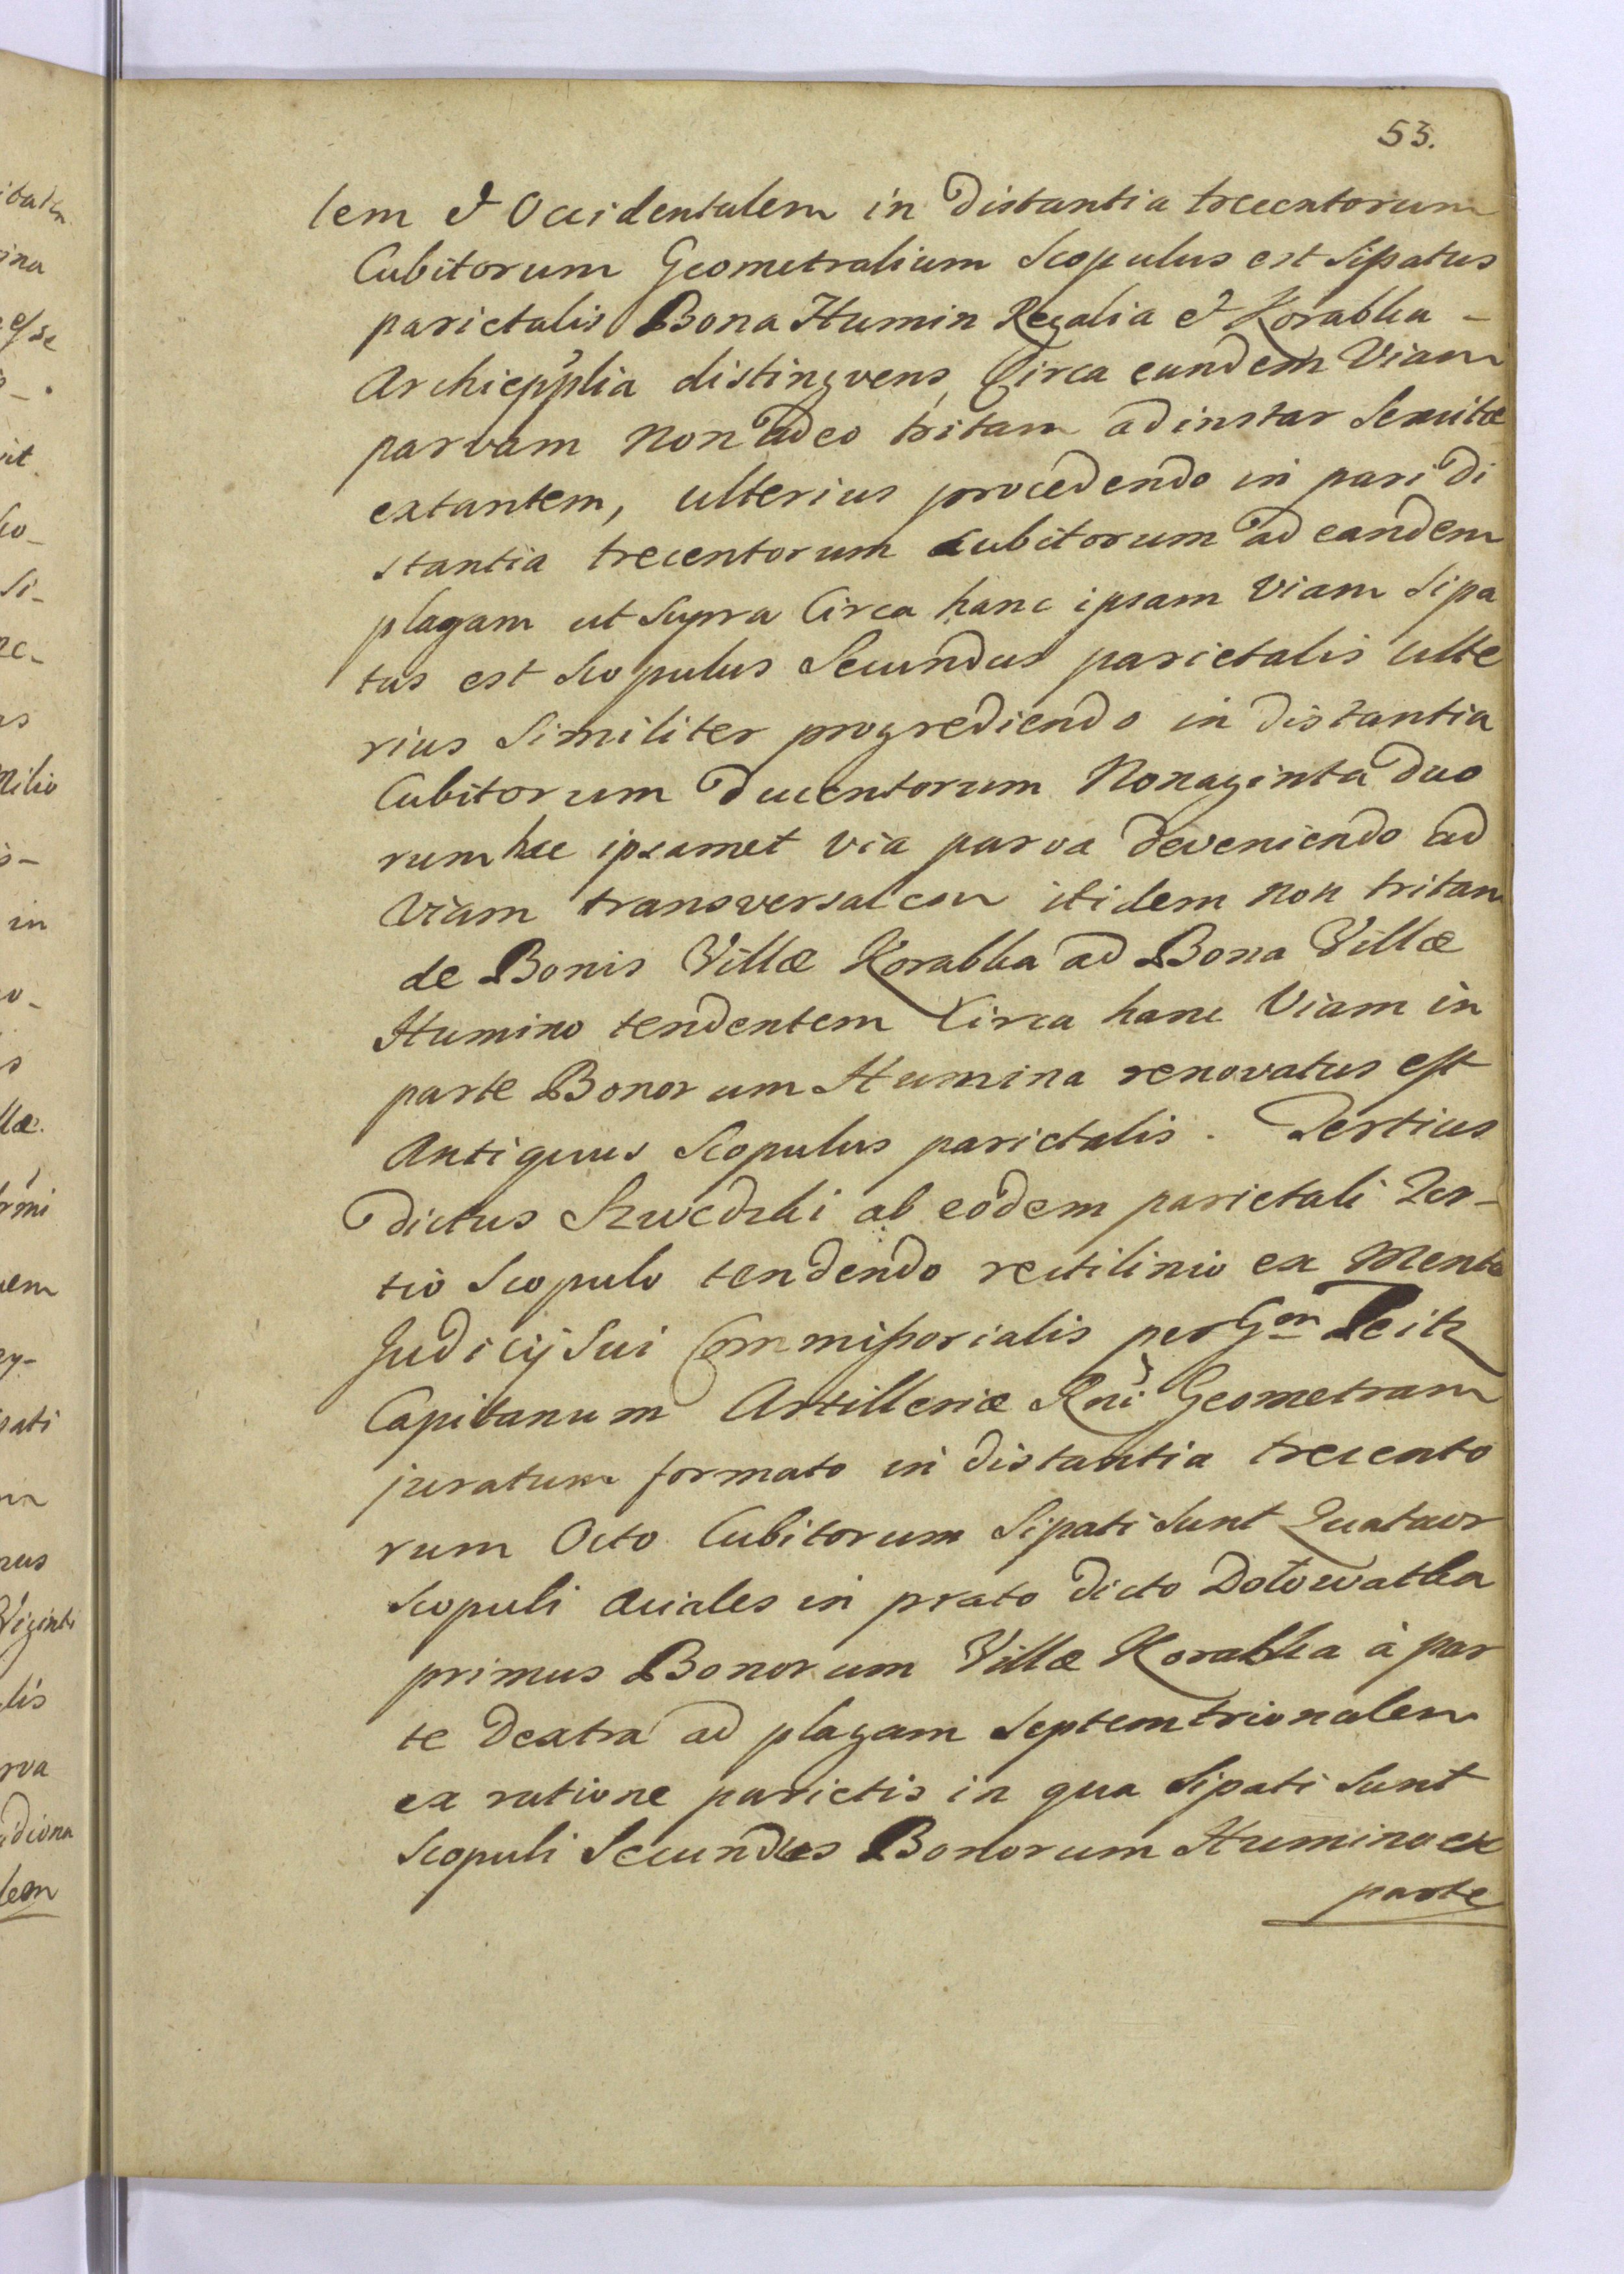 53.
lem & Occidentalem in distantia trecentorum
Cubitorum Geometralium Scopulus est Sipatus
parietalis Bona Humin Regalia & Korabka -
Archiepp'lia distingvens, Circa eundem Viam
parvam non adeo tritam ad instar Semitæ
extantem, ulterius procedendo in pari di
stantia trecentorum cubitorum ad eandem
plagam ut Supra Circa hanc ipsam Viam Sipa
tus est Scopulus Secundus parietalis ulte
rius Similiter progrediendo in distantia
Cubitorum Ducentorum Nonaginta duo
rum hac ipsamet via parva deveniendo ad
Viam transversalem itidem non tritam
de Bonis Villæ Korabka ad Bona Villæ
Humino tendentem Circa hanc Viam in
parte Bonorum Humina renovatus est
Antiquus Scopulus parietalis. Tertius
dictus Szwedzki ab eodem parietali Ter-
tio Scopulo tendendo rectilinio ex Mente
Judicij Sui Commissorialis per Gm Zeitz
Capitanum Artilleriæ Rni Geometram
juratum formato in distantia trecento
rum Octo Cubitorum Sipati Sunt Quatuor
Scopuli Aciales in prato dicto Dołowatka
primus Bonorum Villæ Korabka à par
te dextra ad plagam Septemtrionalem
ex ratione parietis in qua Sipati Sunt
Scopuli Secundus Bonorum Humino ex
parte